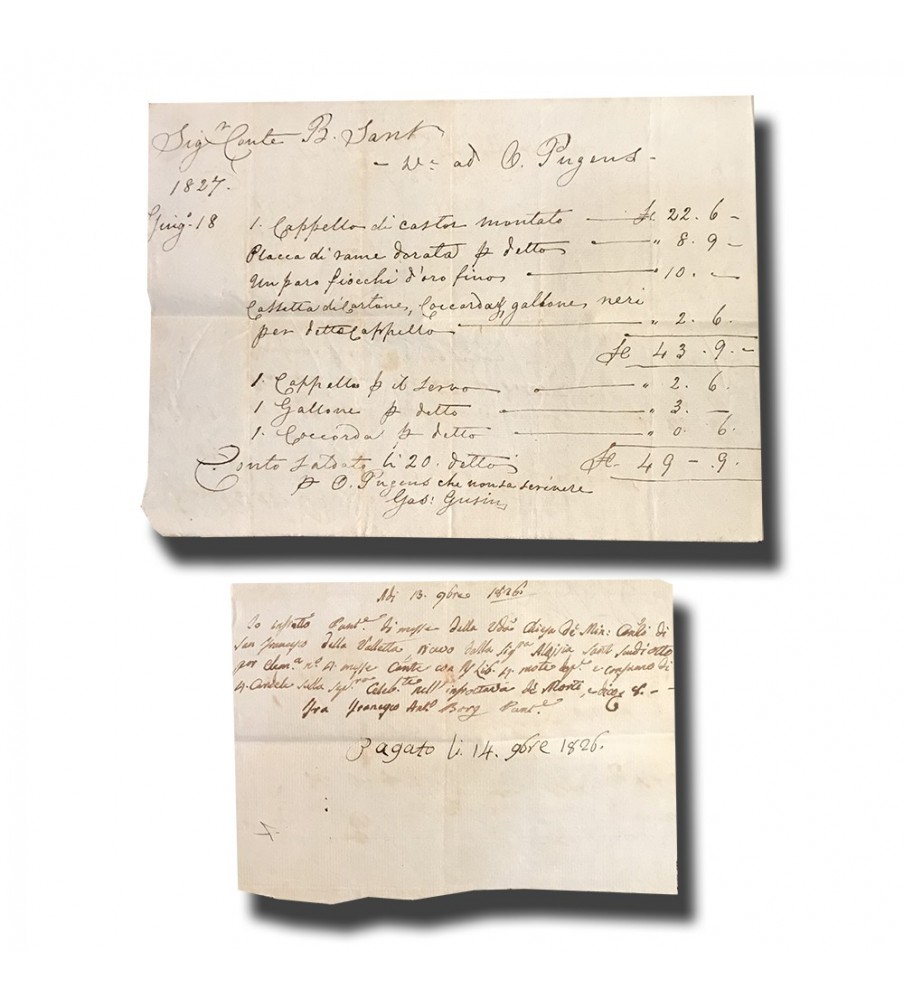 Sigr Conte B. Sant
- De ad O. Pugens -
1827.
Giugo. 18 1. Cappello di castor montato Sc. 22. 6 -
Placca di rame dorata p detto " 8. 9 -
Un paro fiocchi d'oro finos " 10. -
Cassetta di Cartone, Coccarda, gallones neri
per detto Cappello " 2. 6.
Sc 43. 9. -
1. Cappello p il servo " 2. 6.
1 Gallone p detto " 3. -
1. Coccorda p detto " 0. 6.
Conto saldato li 20. detto Sc. 49 - . 9.
p O. Pugens che non sa scrivere
Gas: Gusin
Adi 13. 9bre 1826.
Io infratto di messe della Chiesa De Min: di
San Francesco della Valletta, ricevo dalla Sigra Aloisia Sant
per no 4. messe e consumo di
4. Candele sulla nell' De Morti,
Fra Francesco Anto Borg
Pagato li. 14. 9bre 1826.